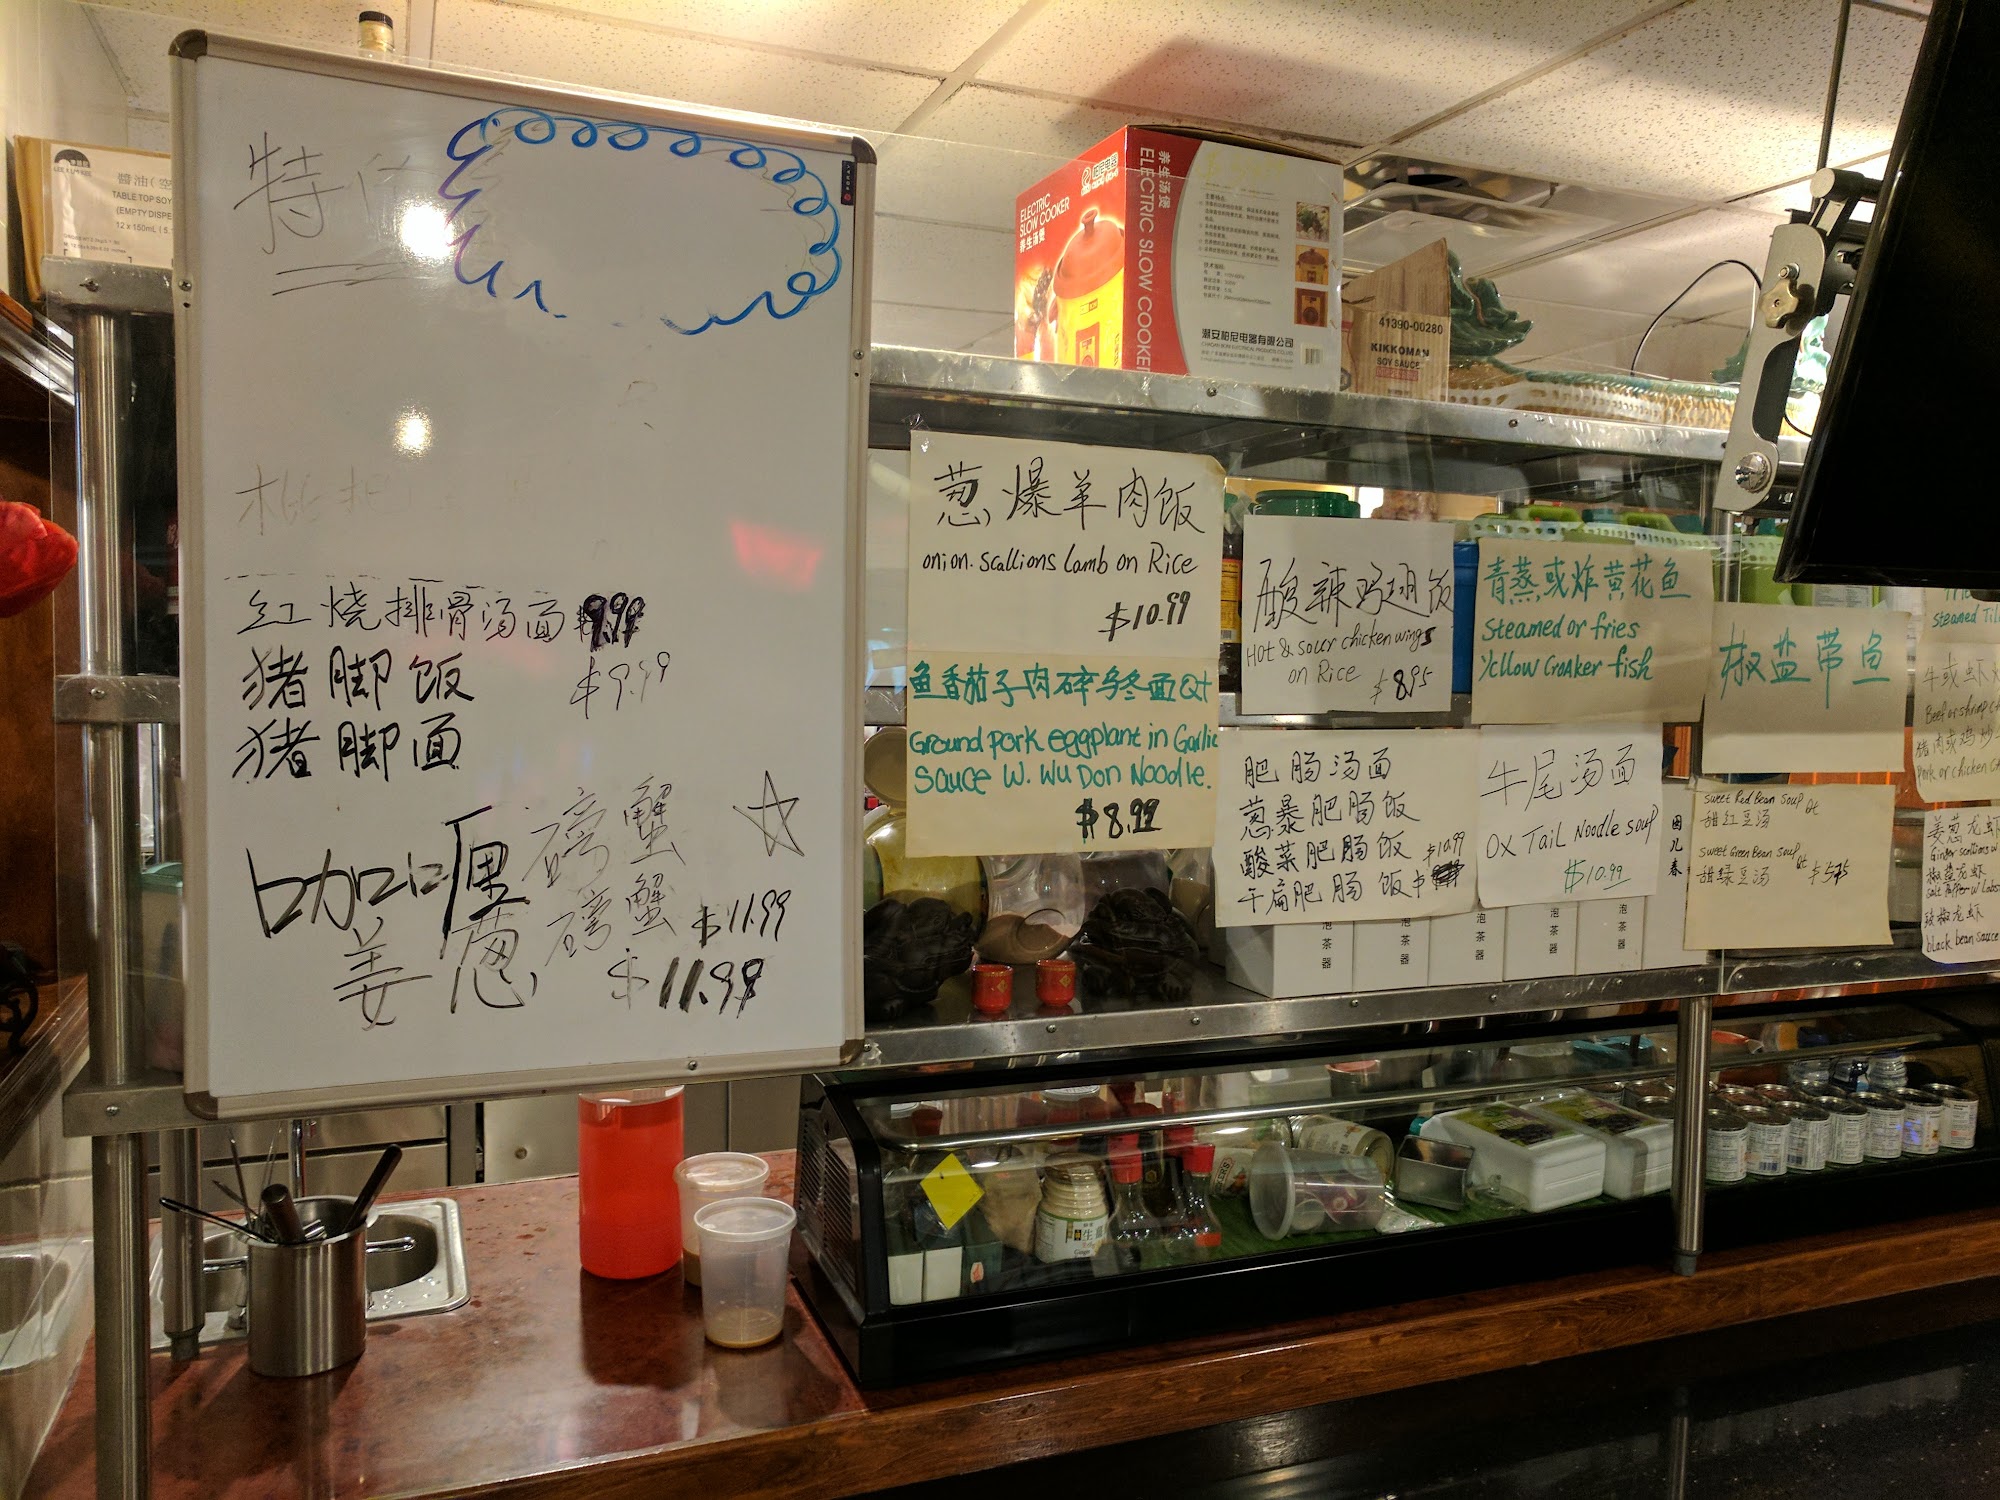 特
红烧排骨汤面 $9.99
猪脚饭 $9.99
猪脚面
咖喱 螃蟹 $11.99
姜葱 螃蟹 $11.99
TABLE TOP SOY
(EMPTY DISPE
ELECTRIC
SLOW COOKER
养生汤煲
养生汤煲
ELECTRIC SLOW COOKER
潮安柏尼电器有限公司
41390-00280
KIKKOMAN
SOY SAUCE
葱爆羊肉饭
onion. scallions lamb on Rice
$10.99
鱼香茄子肉碎乌冬面 Qt
Ground pork eggplant in Garlic
Sauce W. Wu Don Noodle.
$8.99
酸辣鸡翅饭
Hot & sour chicken wings
on Rice $8.95
肥肠汤面
葱暴肥肠饭
酸菜肥肠饭 $10.99
午扁肥肠饭 $
青蒸或炸黄花鱼
Steamed or fries
Yellow Croaker fish
牛尾汤面
Ox Tail Noodle soup
$10.99
椒盐带鱼
sweet Red Bean Soup Qt
甜红豆汤
sweet Green Bean Soup Qt
甜绿豆汤 $5.75
Steamed Til
牛或虾
Beef or shrimp
猪肉或鸡炒
Pork or chicken
姜葱龙虾
Ginger scallions w
椒盐龙虾
Salt Pepper w Lobs
豉椒龙虾
black bean sauce
泡茶器
泡茶器
泡茶器
泡茶器
泡茶器